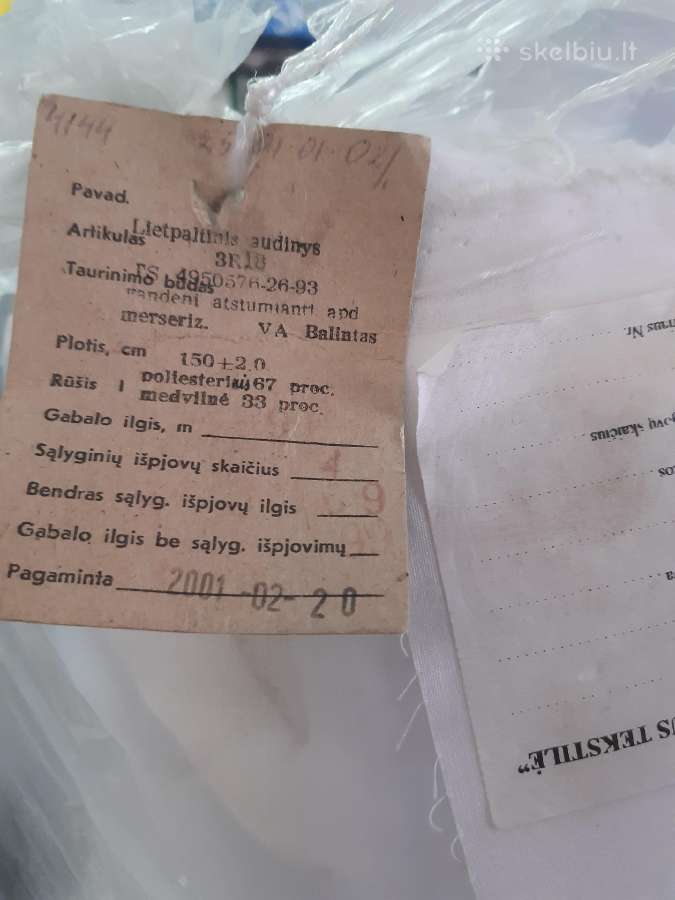 skelbiu.lt
4144
Pavad.
Lietpaltinis audinys
Artikulas
3R18
Taurinimo būdas
TS 4950576-26-93
vandeni atstumianti apd
merseriz. VA Balintas
Plotis, cm 150±2.0
Rūšis I poliesterinių 67 proc.
medvilnė 33 proc.
Gabalo ilgis, m
Sąlyginių išpjovų skaičius 4
Bendras sąlyg. išpjovų ilgis 9
Gabalo ilgis be sąlyg. išpjovimų
Pagaminta 2001-02-20
Nr.
skaičius
TEKSTILĖ"